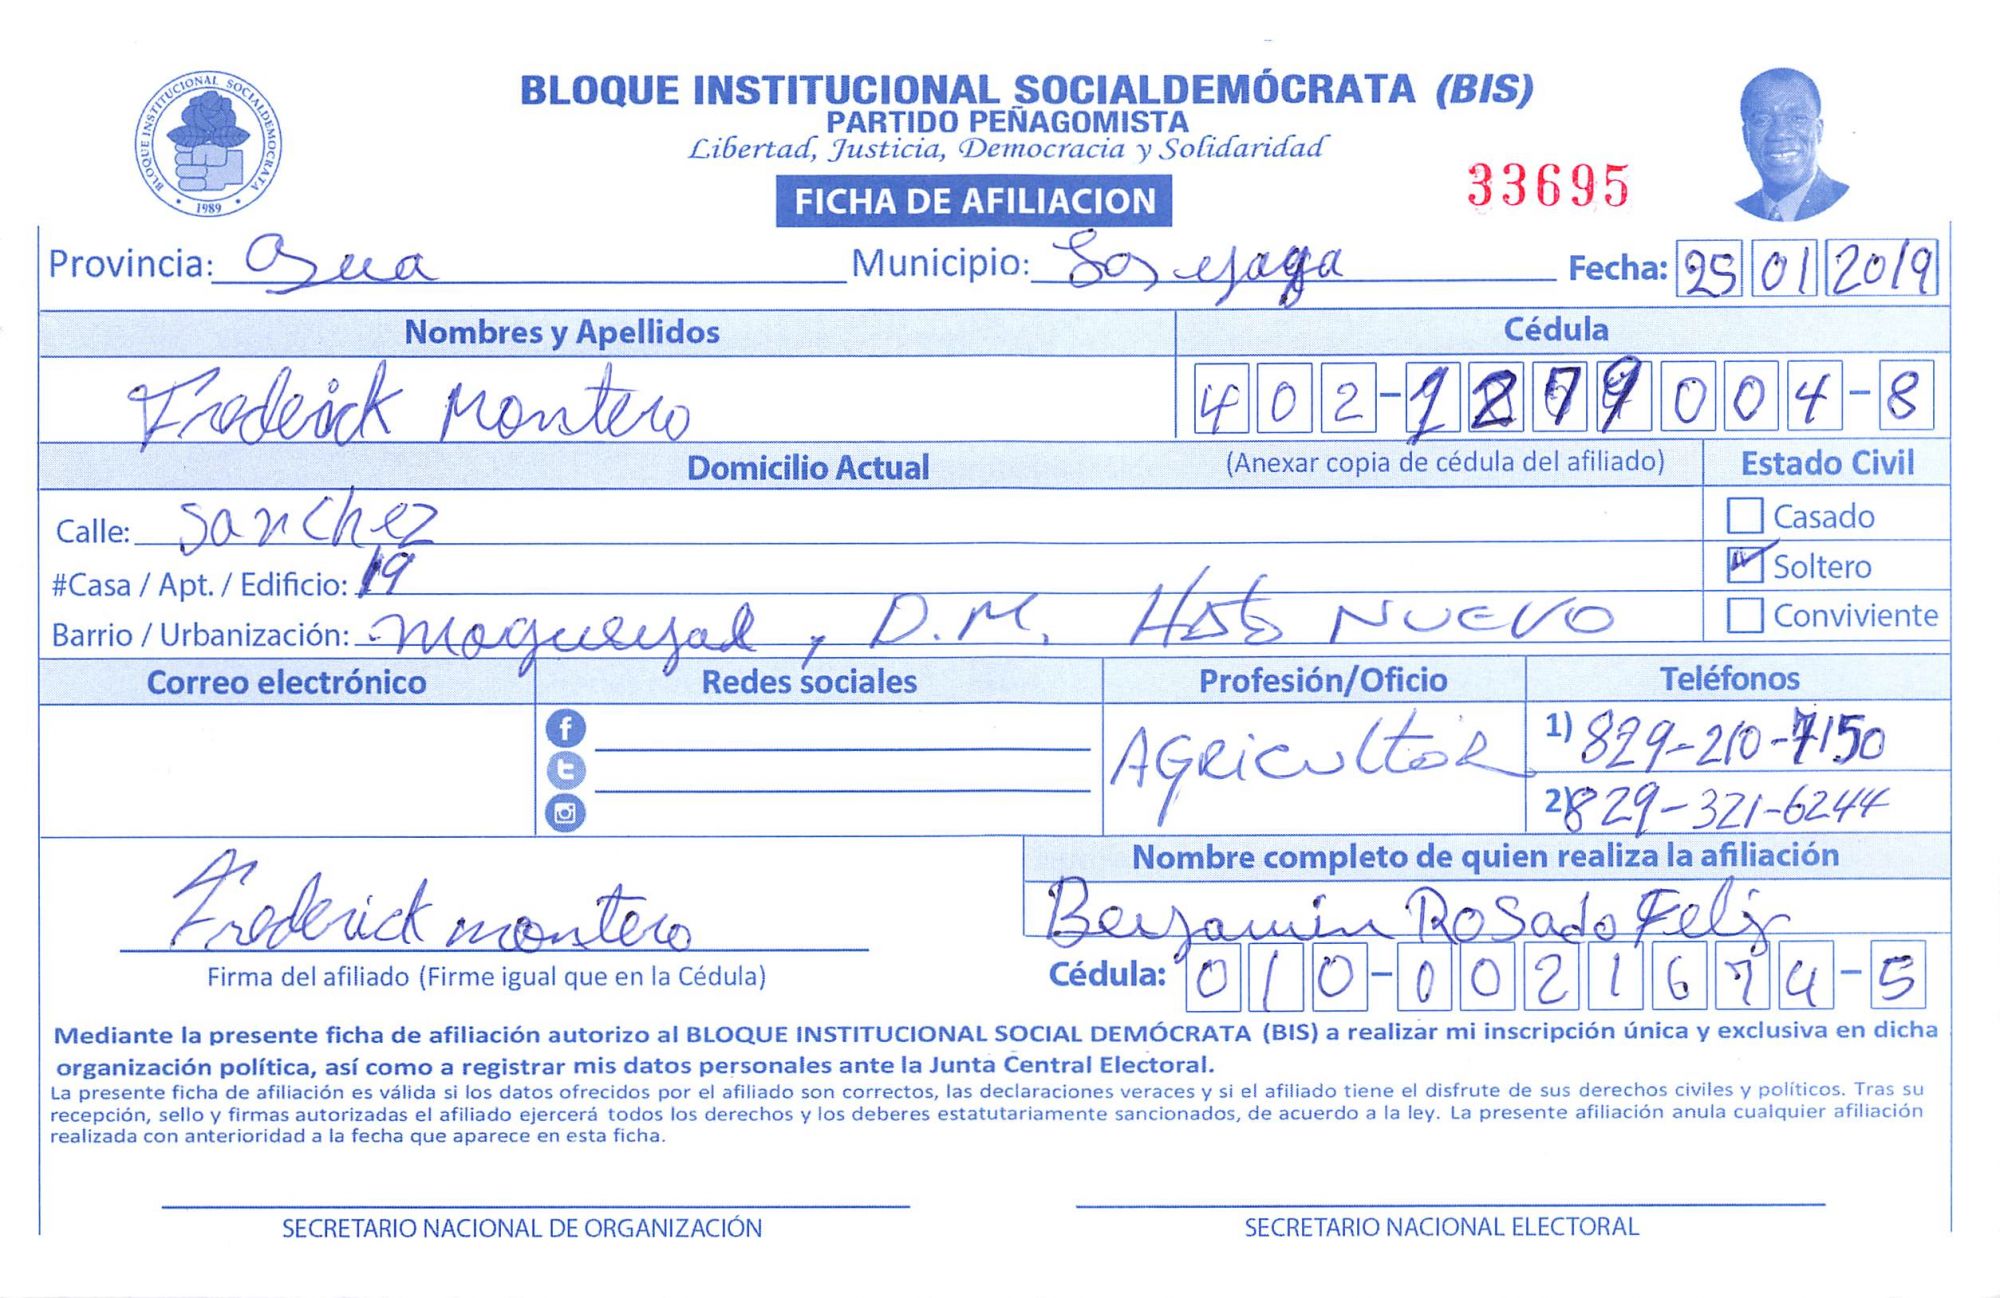 BLOQUE INSTITUCIONAL SOCIALDEMÓCRATA (BIS)
PARTIDO PEÑAGOMISTA
Libertad, Justicia, Democracia y Solidaridad
BLOQUE INSTITUCIONAL SOCIALDEMOCRATA
1989
FICHA DE AFILIACION
33695
Provincia: Azua Municipio: Fecha: 25 01 2019
Nombres y Apellidos Cédula
Frederick Montero 402-1279004-8
Domicilio Actual (Anexar copia de cédula del afiliado) Estado Civil
Calle: Sanchez Casado
#Casa / Apt. / Edificio: 19 Soltero
Barrio / Urbanización: Magueyal, D.M. Hato NUEVO Conviviente
Correo electrónico Redes sociales Profesión/Oficio Teléfonos
AGRicultoR
1) 829-210-7150
2) 829-321-6244
Nombre completo de quien realiza la afiliación
Frederick montero Benjamin RoSado Feliz
Firma del afiliado (Firme igual que en la Cédula) Cédula: 010-0021674-5
Mediante la presente ficha de afiliación autorizo al BLOQUE INSTITUCIONAL SOCIAL DEMÓCRATA (BIS) a realizar mi inscripción única y exclusiva en dicha
organización política, así como a registrar mis datos personales ante la Junta Central Electoral.
La presente ficha de afiliación es válida si los datos ofrecidos por el afiliado son correctos, las declaraciones veraces y si el afiliado tiene el disfrute de sus derechos civiles y políticos. Tras su
recepción, sello y firmas autorizadas el afiliado ejercerá todos los derechos y los deberes estatutariamente sancionados, de acuerdo a la ley. La presente afiliación anula cualquier afiliación
realizada con anterioridad a la fecha que aparece en esta ficha.
SECRETARIO NACIONAL DE ORGANIZACIÓN SECRETARIO NACIONAL ELECTORAL